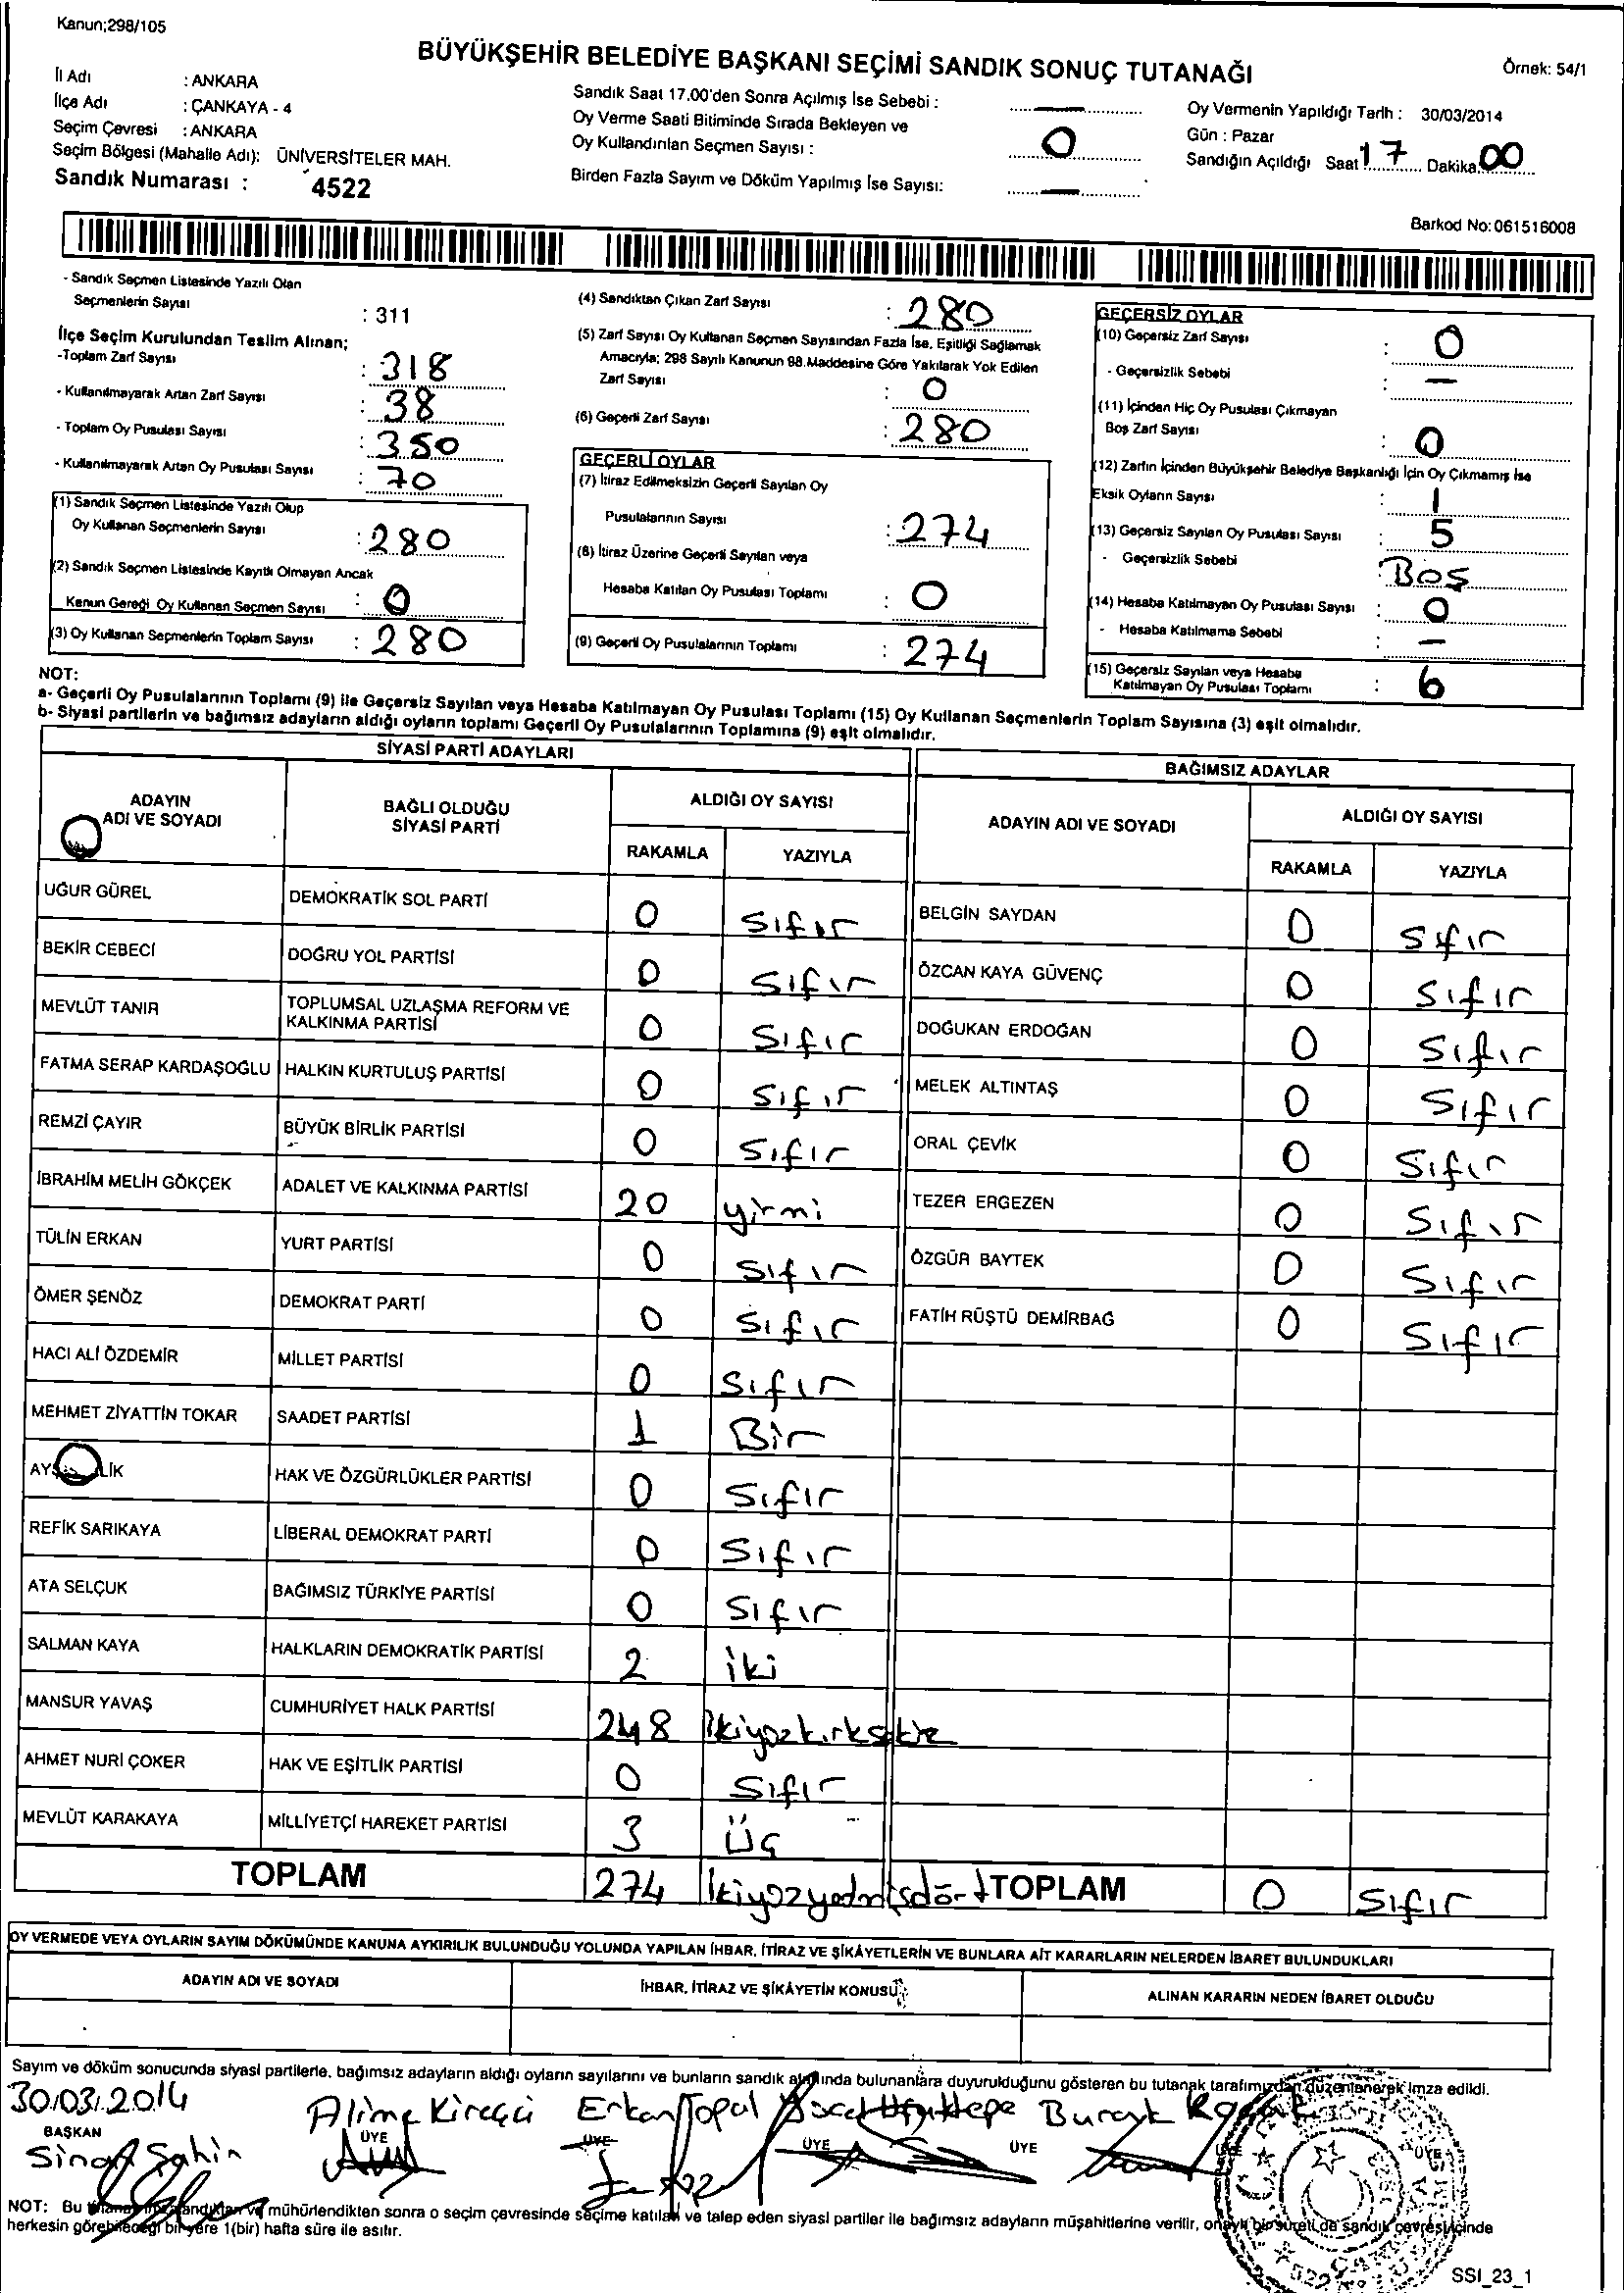 Kanun;298/105
BÜYÜKŞEHİR BELEDİYE BAŞKANI SEÇİMİ SANDIK SONUÇ TUTANAĞI
Örnek: 54/1
İl Adı : ANKARA
İlçe Adı : ÇANKAYA - 4
Seçim Çevresi : ANKARA
Seçim Bölgesi (Mahalle Adı): ÜNİVERSİTELER MAH.
Sandık Numarası : 4522
Sandık Saat 17.00'den Sonra Açılmış İse Sebebi : —
Oy Verme Saati Bitiminde Sırada Bekleyen ve
Oy Kullandırılan Seçmen Sayısı : 0
Birden Fazla Sayım ve Döküm Yapılmış İse Sayısı: —
Oy Vermenin Yapıldığı Tarih : 30/03/2014
Gün : Pazar
Sandığın Açıldığı Saat 17 Dakika 00
Barkod No:061516008
- Sandık Seçmen Listesinde Yazılı Olan
Seçmenlerin Sayısı : 311
İlçe Seçim Kurulundan Teslim Alınan;
-Toplam Zarf Sayısı : 318
- Kullanılmayarak Artan Zarf Sayısı : 38
- Toplam Oy Pusulası Sayısı : 350
- Kullanılmayarak Artan Oy Pusulası Sayısı : 70
(1) Sandık Seçmen Listesinde Yazılı Olup
Oy Kullanan Seçmenlerin Sayısı : 280
(2) Sandık Seçmen Listesinde Kayıtlı Olmayan Ancak
Kanun Gereği Oy Kullanan Seçmen Sayısı : 0
(3) Oy Kullanan Seçmenlerin Toplam Sayısı : 280
(4) Sandıktan Çıkan Zarf Sayısı : 280
(5) Zarf Sayısı Oy Kullanan Seçmen Sayısından Fazla İse, Eşitliği Sağlamak
Amacıyla; 298 Sayılı Kanunun 98.Maddesine Göre Yakılarak Yok Edilen
Zarf Sayısı : 0
(6) Geçerli Zarf Sayısı : 280
GEÇERLİ OYLAR
(7) İtiraz Edilmeksizin Geçerli Sayılan Oy
Pusulalarının Sayısı : 274
(8) İtiraz Üzerine Geçerli Sayılan veya
Hesaba Katılan Oy Pusulası Toplamı : 0
(9) Geçerli Oy Pusulalarının Toplamı : 274
GEÇERSİZ OYLAR
(10) Geçersiz Zarf Sayısı : 0
- Geçersizlik Sebebi : —
(11) İçinden Hiç Oy Pusulası Çıkmayan
Boş Zarf Sayısı : 0
(12) Zarfın İçinden Büyükşehir Belediye Başkanlığı İçin Oy Çıkmamış İse
Eksik Oyların Sayısı : 1
(13) Geçersiz Sayılan Oy Pusulası Sayısı : 5
- Geçersizlik Sebebi : Boş
(14) Hesaba Katılmayan Oy Pusulası Sayısı : 0
- Hesaba Katılmama Sebebi : —
(15) Geçersiz Sayılan veya Hesaba
Katılmayan Oy Pusulası Toplamı : 6
NOT:
a- Geçerli Oy Pusulalarının Toplamı (9) ile Geçersiz Sayılan veya Hesaba Katılmayan Oy Pusulası Toplamı (15) Oy Kullanan Seçmenlerin Toplam Sayısına (3) eşit olmalıdır.
b- Siyasi partilerin ve bağımsız adayların aldığı oyların toplamı Geçerli Oy Pusulalarının Toplamına (9) eşit olmalıdır.
SİYASİ PARTİ ADAYLARI
ADAYIN ADI VE SOYADI BAĞLI OLDUĞU SİYASİ PARTİ ALDIĞI OY SAYISI
RAKAMLA YAZIYLA
UĞUR GÜREL DEMOKRATİK SOL PARTİ 0 Sıfır
BEKİR CEBECİ DOĞRU YOL PARTİSİ 0 Sıfır
MEVLÜT TANIR TOPLUMSAL UZLAŞMA REFORM VE KALKINMA PARTİSİ 0 Sıfır
FATMA SERAP KARDAŞOĞLU HALKIN KURTULUŞ PARTİSİ 0 Sıfır
REMZİ ÇAYIR BÜYÜK BİRLİK PARTİSİ 0 Sıfır
İBRAHİM MELİH GÖKÇEK ADALET VE KALKINMA PARTİSİ 20 yirmi
TÜLİN ERKAN YURT PARTİSİ 0 Sıfır
ÖMER ŞENÖZ DEMOKRAT PARTİ 0 Sıfır
HACI ALİ ÖZDEMİR MİLLET PARTİSİ 0 Sıfır
MEHMET ZİYATTİN TOKAR SAADET PARTİSİ 1 Bir
HAK VE ÖZGÜRLÜKLER PARTİSİ 0 Sıfır
REFİK SARIKAYA LİBERAL DEMOKRAT PARTİ 0 Sıfır
ATA SELÇUK BAĞIMSIZ TÜRKİYE PARTİSİ 0 Sıfır
SALMAN KAYA HALKLARIN DEMOKRATİK PARTİSİ 2 iki
MANSUR YAVAŞ CUMHURİYET HALK PARTİSİ 248 İkiyüzkırksekiz
AHMET NURİ ÇOKER HAK VE EŞİTLİK PARTİSİ 0 Sıfır
MEVLÜT KARAKAYA MİLLİYETÇİ HAREKET PARTİSİ 3 üç
TOPLAM 274 İkiyüzyetmişdört
BAĞIMSIZ ADAYLAR
ADAYIN ADI VE SOYADI ALDIĞI OY SAYISI
RAKAMLA YAZIYLA
BELGİN SAYDAN 0 Sıfır
ÖZCAN KAYA GÜVENÇ 0 Sıfır
DOĞUKAN ERDOĞAN 0 Sıfır
MELEK ALTINTAŞ 0 Sıfır
ORAL ÇEVİK 0 Sıfır
TEZER ERGEZEN 0 Sıfır
ÖZGÜR BAYTEK 0 Sıfır
FATİH RÜŞTÜ DEMİRBAĞ 0 Sıfır
TOPLAM 0 Sıfır
OY VERMEDE VEYA OYLARIN SAYIM DÖKÜMÜNDE KANUNA AYKIRILIK BULUNDUĞU YOLUNDA YAPILAN İHBAR, İTİRAZ VE ŞİKÂYETLERİN VE BUNLARA AİT KARARLARIN NELERDEN İBARET BULUNDUKLARI
ADAYIN ADI VE SOYADI İHBAR, İTİRAZ VE ŞİKÂYETİN KONUSU ALINAN KARARIN NEDEN İBARET OLDUĞU
Sayım ve döküm sonucunda siyasi partilerle, bağımsız adayların aldığı oyların sayılarını ve bunların sandık alanında bulunanlara duyurulduğunu gösteren bu tutanak tarafımızdan düzenlenerek imza edildi.
30.03.2014
Alime Kireçci Erkan Topal Burak
BAŞKAN ÜYE ÜYE ÜYE ÜYE ÜYE ÜYE
Sinan Şahin
NOT: Bu ve mühürlendikten sonra o seçim çevresinde seçime katılan ve talep eden siyasi partiler ile bağımsız adayların müşahitlerine verilir, onaylı bir sureti de sandık çevresi içinde
herkesin görebileceği bir yere 1(bir) hafta süre ile asılır.
SSI_23_1